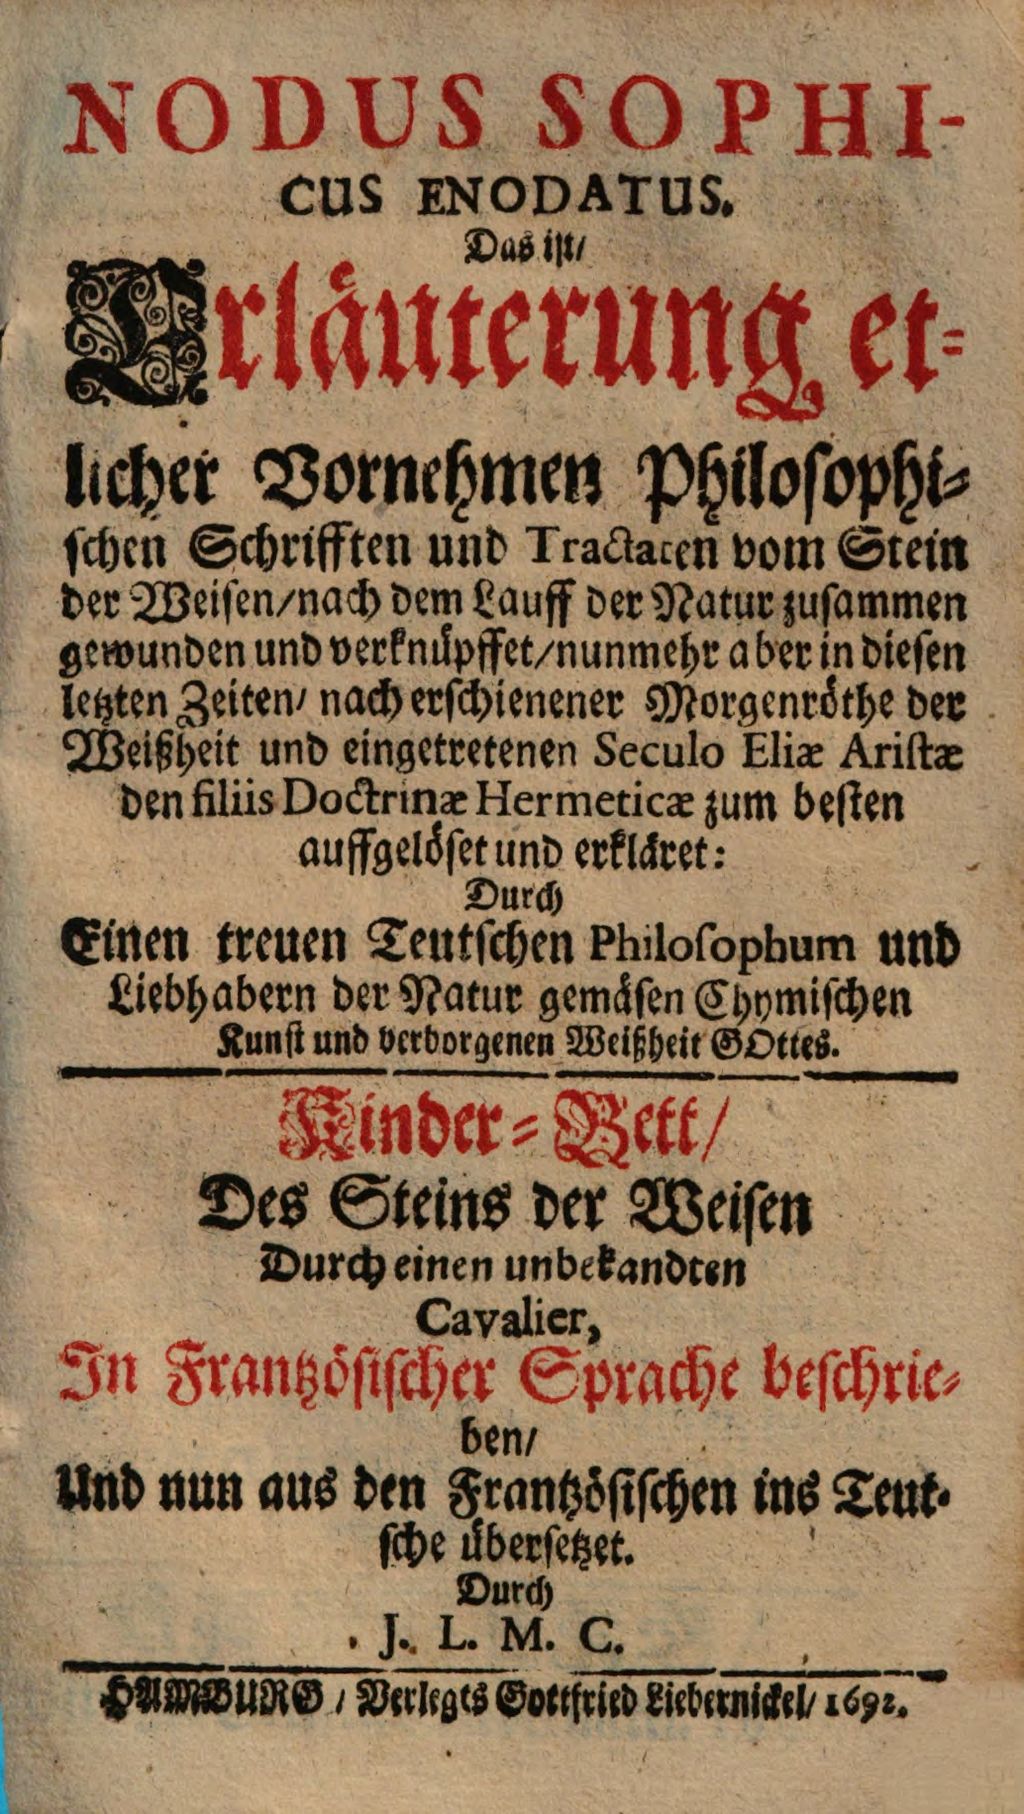 NODUS SOPHI-
CUS ENODATUS.
Das ist/
Erläuterung et-
licher Vornehmen Philosophi-
schen Schrifften und Tractaten vom Stein
der Weisen/nach dem Lauff der Natur zusammen
gewunden und verknüpffet/nunmehr aber in diesen
letzten Zeiten/ nach erschienener Morgenröthe der
Weißheit und eingetretenen Seculo Eliæ Aristæ
den filiis Doctrinæ Hermeticæ zum besten
auffgelöset und erkläret:
Durch
Einen treuen Teutschen Philosophum und
Liebhabern der Natur gemäsen Chymischen
Kunst und verborgenen Weißheit GOttes.
Kinder-Bett/
Des Steins der Weisen
Durch einen unbekandten
Cavalier,
In Frantzösischer Sprache beschrie-
ben/
Und nun aus den Frantzösischen ins Teut-
sche übersetzet.
Durch
J. L. M. C.
HAMBURG / Verlegts Gottfried Liebernickel/ 1692.